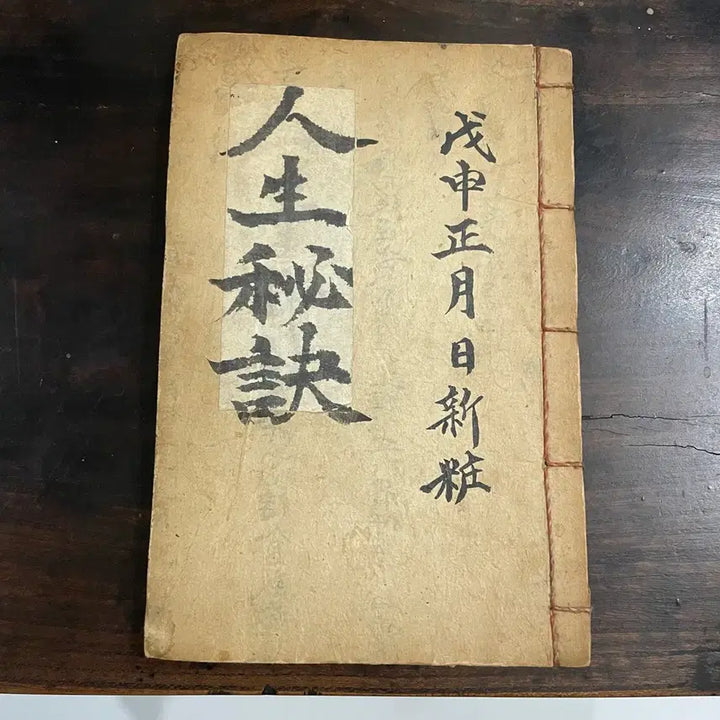 戊申正月日新粧
人生秘訣